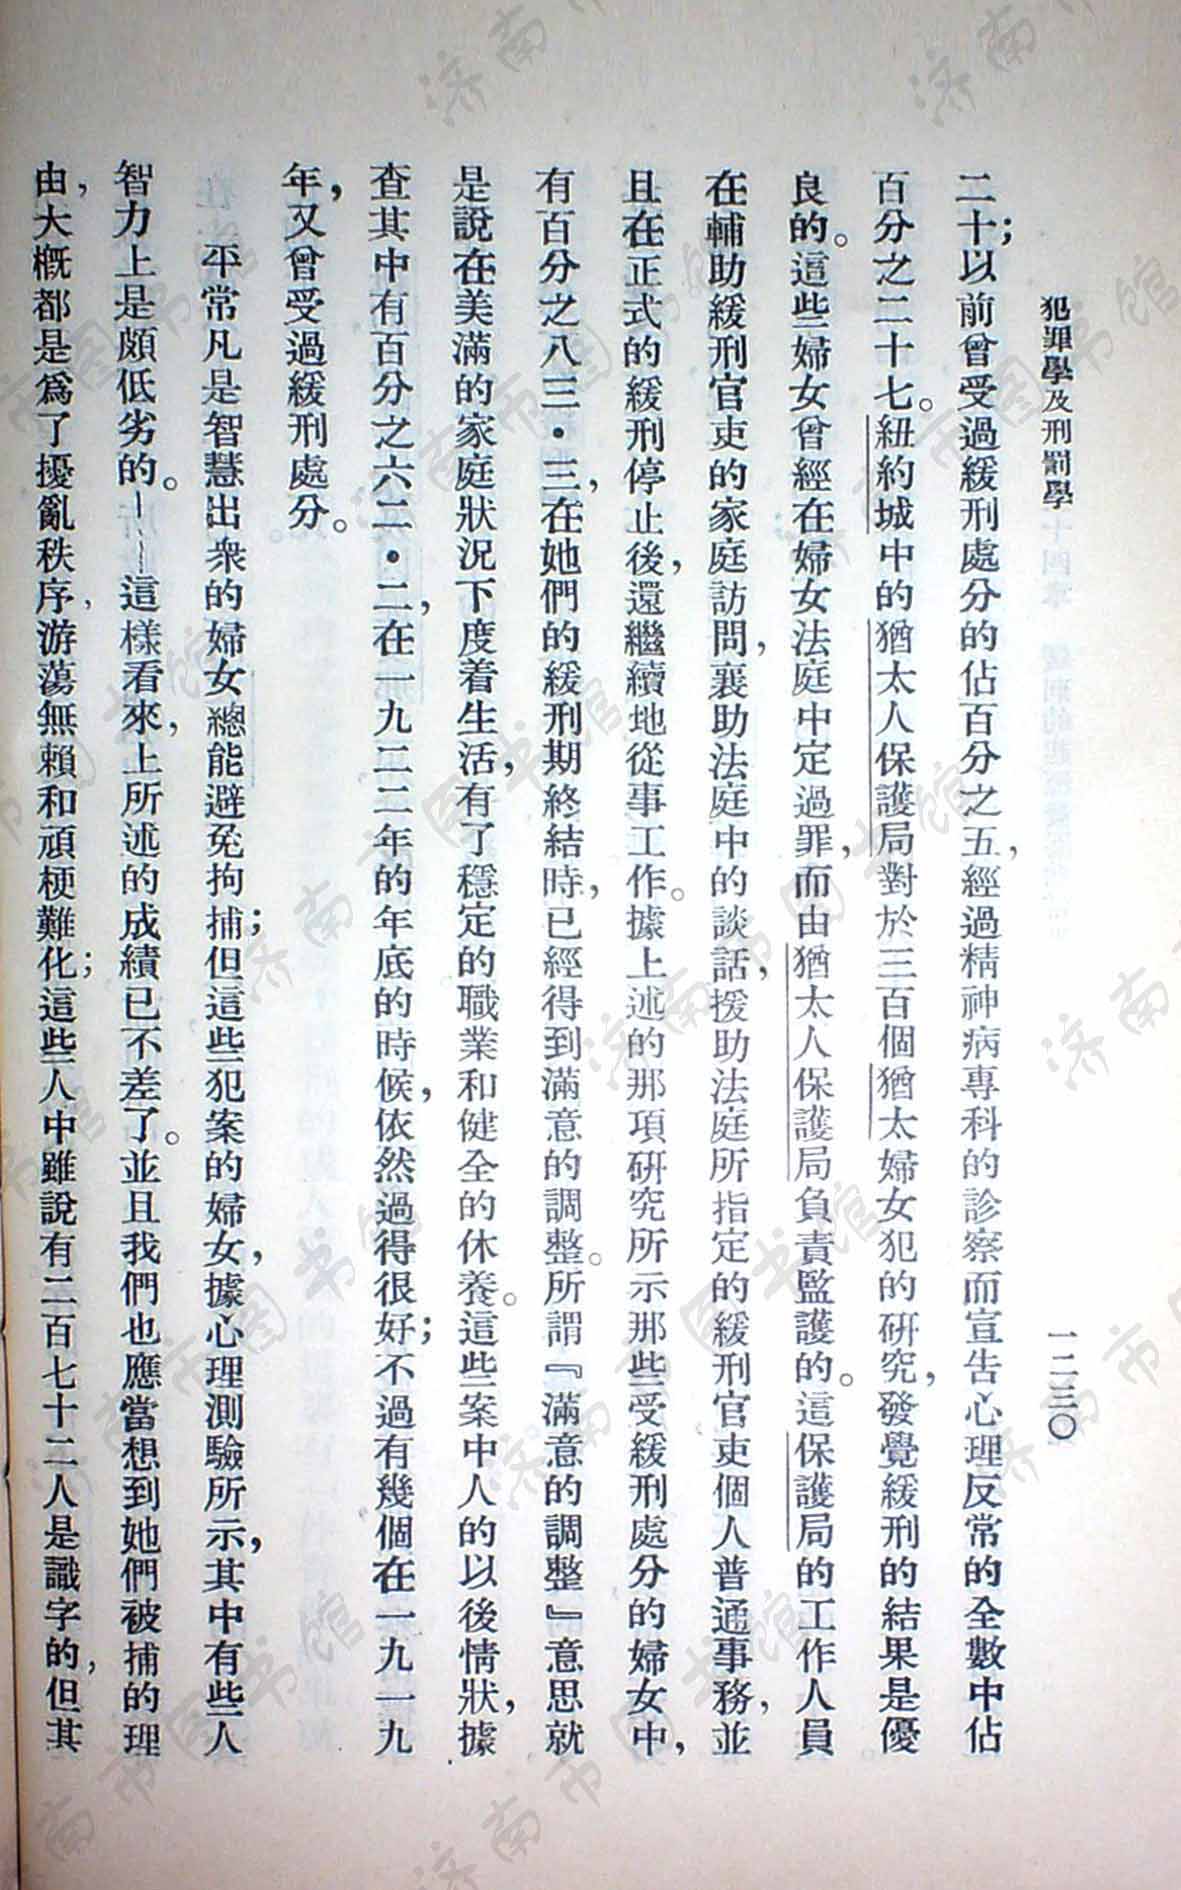 犯罪學及刑罰學
一二三〇
二十；以前曾受過緩刑處分的佔百分之五，經過精神病專科的診察而宣告心理反常的全數中佔
百分之二十七。紐約城中的猶太人保護局對於三百個猶太婦女犯的研究，發覺緩刑的結果是優
良的。這些婦女曾經在婦女法庭中定過罪，而由猶太人保護局負責監護的。這保護局的工作人員
在輔助緩刑官吏的家庭訪問，襄助法庭中的談話，援助法庭所指定的緩刑官吏個人普通事務，並
且在正式的緩刑停止後，還繼續地從事工作。據上述的那項研究所示那些受緩刑處分的婦女中，
有百分之八三·三，在她們的緩刑期終結時，已經得到滿意的調整。所謂『滿意的調整』意思就
是說在美滿的家庭狀況下度着生活，有了穩定的職業和健全的休養。這些案中人的以後情狀，據
查其中有百分之六二·二，在一九二二年的年底的時候，依然過得很好；不過有幾個在一九一九
年，又曾受過緩刑處分。
平常凡是智慧出衆的婦女總能避免拘捕；但這些犯案的婦女，據心理測驗所示，其中有些人
智力上是頗低劣的。——這樣看來，上所述的成績已不差了。並且我們也應當想到她們被捕的理
由，大概都是爲了擾亂秩序，游蕩無賴和頑梗難化；這些人中雖說有二百七十二人是識字的，但其
济南市图书馆